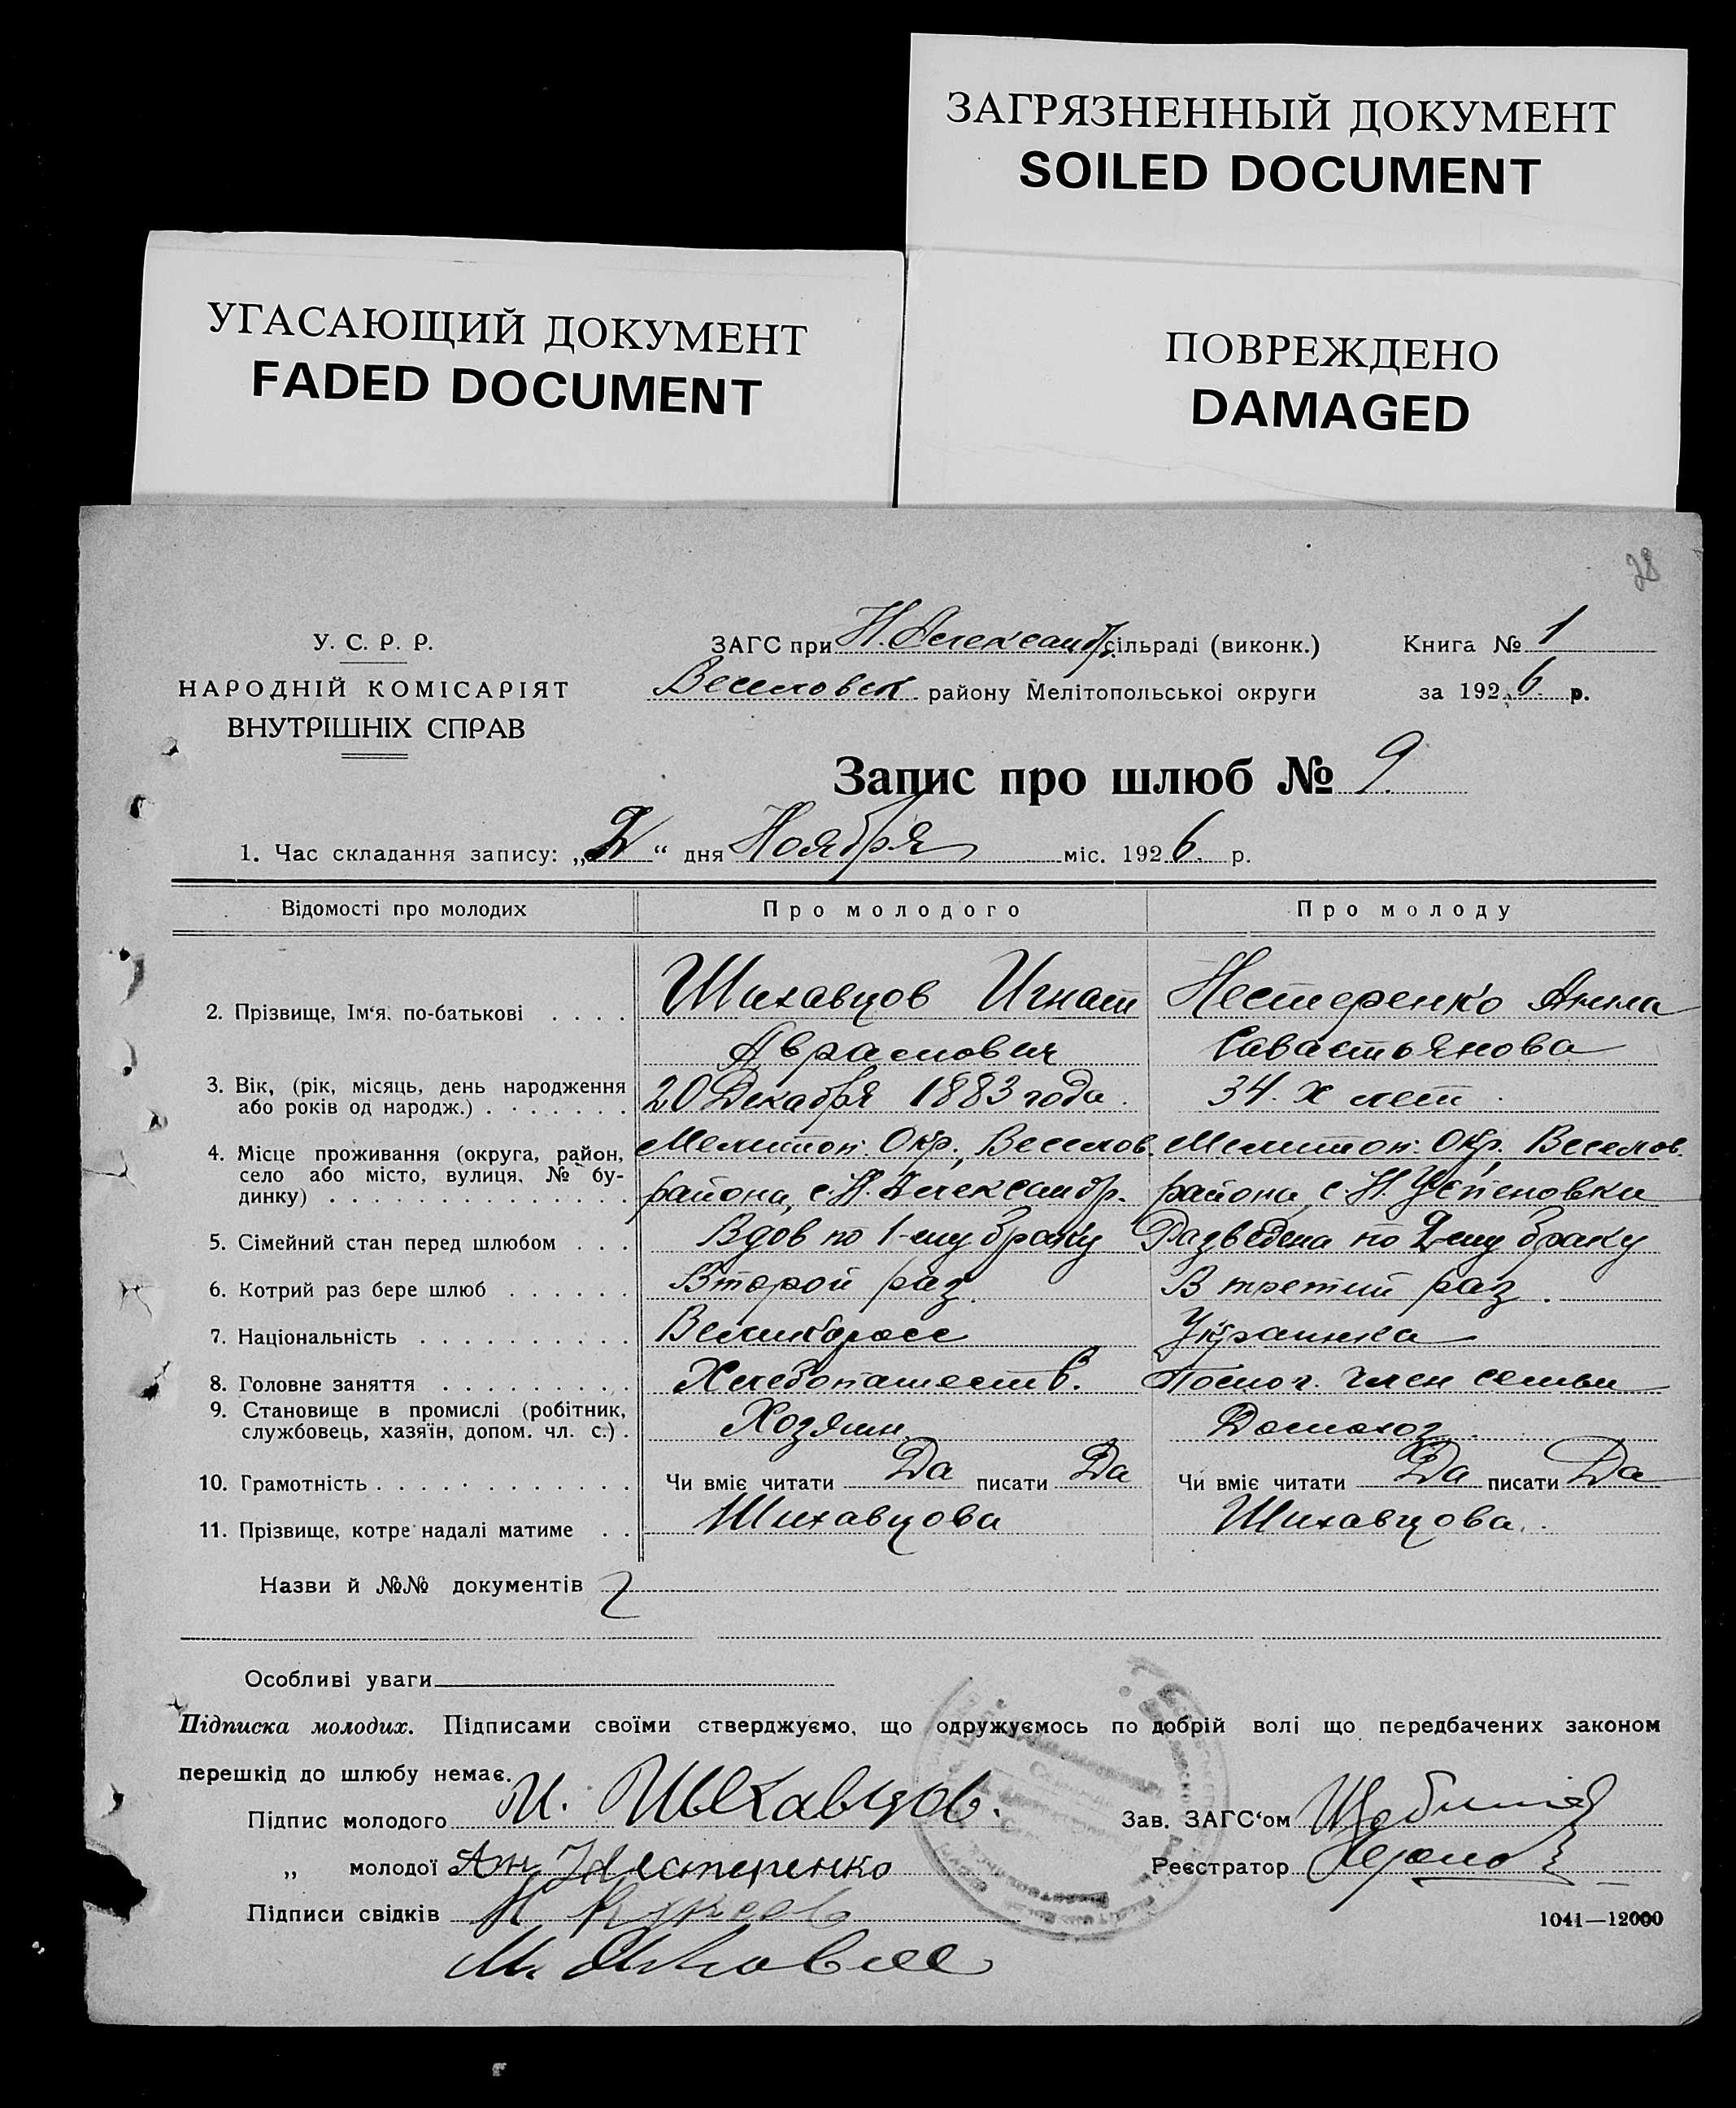 ЗАГРЯЗНЕННЫЙ ДОКУМЕНТ
SOILED DOCUMENT
УГАСАЮЩИЙ ДОКУМЕНТ
FADED DOCUMENT
ПОВРЕЖДЕНО
DAMAGED
28
У. С. Р. Р.
НАРОДНІЙ КОМІСАРІЯТ
ВНУТРІШНІХ СПРАВ
ЗАГС при Н. Александр. сільраді (виконк.) Книга № 1
Веселовск району Мелітопольської округи за 1926 р.
Запис про шлюб № 9.
1. Час складання запису: „2“ дня Ноября міс. 1926. р.
Відомості про молодих Про молодого Про молоду
2. Прізвище, Ім'я, по-батькові Шихавцов Игнат Нестеренко Анна
Аврамович Савастьянова
3. Вік, (рік, місяць, день народження або років од народж.) 20 Декабря 1883 года. 34-х лет
4. Місце проживання (округа, район, село або місто, вулиця, № будинку) Мелитоп. Окр., Веселов. Мелитоп. Окр. Веселов.
района, с. Н. Александр. района, с. Н. Успеновки
5. Сімейний стан перед шлюбом Вдов по 1-му браку Разведена по 2-му браку
6. Котрий раз бере шлюб Второй раз. В третий раз.
7. Національність Великоросс Украинка
8. Головне заняття Хлебопашеств. Помог. член семьи
9. Становище в промислі (робітник, службовець, хазяїн, допом. чл. с.) Хозяин. Домохоз.
10. Грамотність Чи вміє читати Да писати Да Чи вміє читати Да писати Да
11. Прізвище, котре надалі матиме Шихавцова Шихавцова.
Назви й №№ документів
Особливі уваги
Підписка молодих. Підписами своїми стверджуємо, що одружуємось по добрій волі що передбачених законом
перешкід до шлюбу немає.
Підпис молодого И. Шыхавцов. Зав. ЗАГС'ом
„ молодої Ан Нестеренко Реєстратор
Підписи свідків
1041—12000